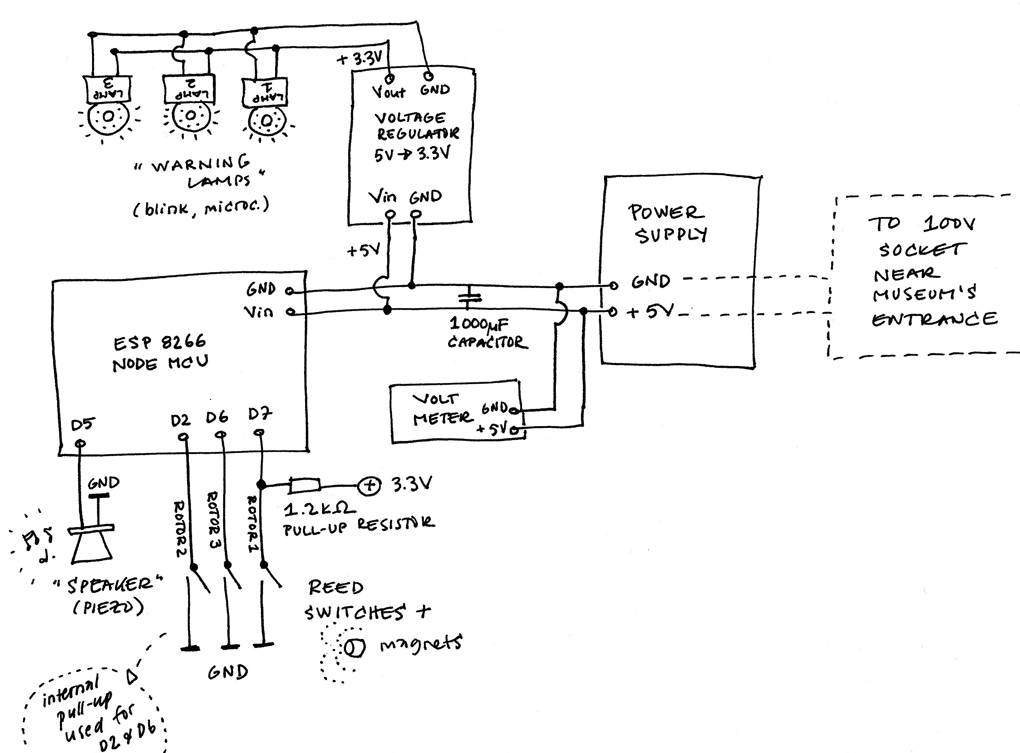 + 3.3V
LAMP 3
LAMP 2
LAMP 1
Vout GND
VOLTAGE
REGULATOR
5V → 3.3V
Vin GND
"WARNING
LAMPS"
(blink, microc.)
+5V
POWER
SUPPLY
GND
+ 5V
TO 100V
SOCKET
NEAR
MUSEUM'S
ENTRANCE
GND
Vin
ESP 8266
NODE MCU
1000µF
CAPACITOR
VOLT
METER
GND
+5V
D5 D2 D6 D7
GND
ROTOR 2
ROTOR 3
ROTOR 1
+ 3.3V
1.2KΩ
PULL-UP RESISTOR
"SPEAKER"
(PIEZO)
REED
SWITCHES +
magnets
GND
internal
pull-up
used for
D2 & D6